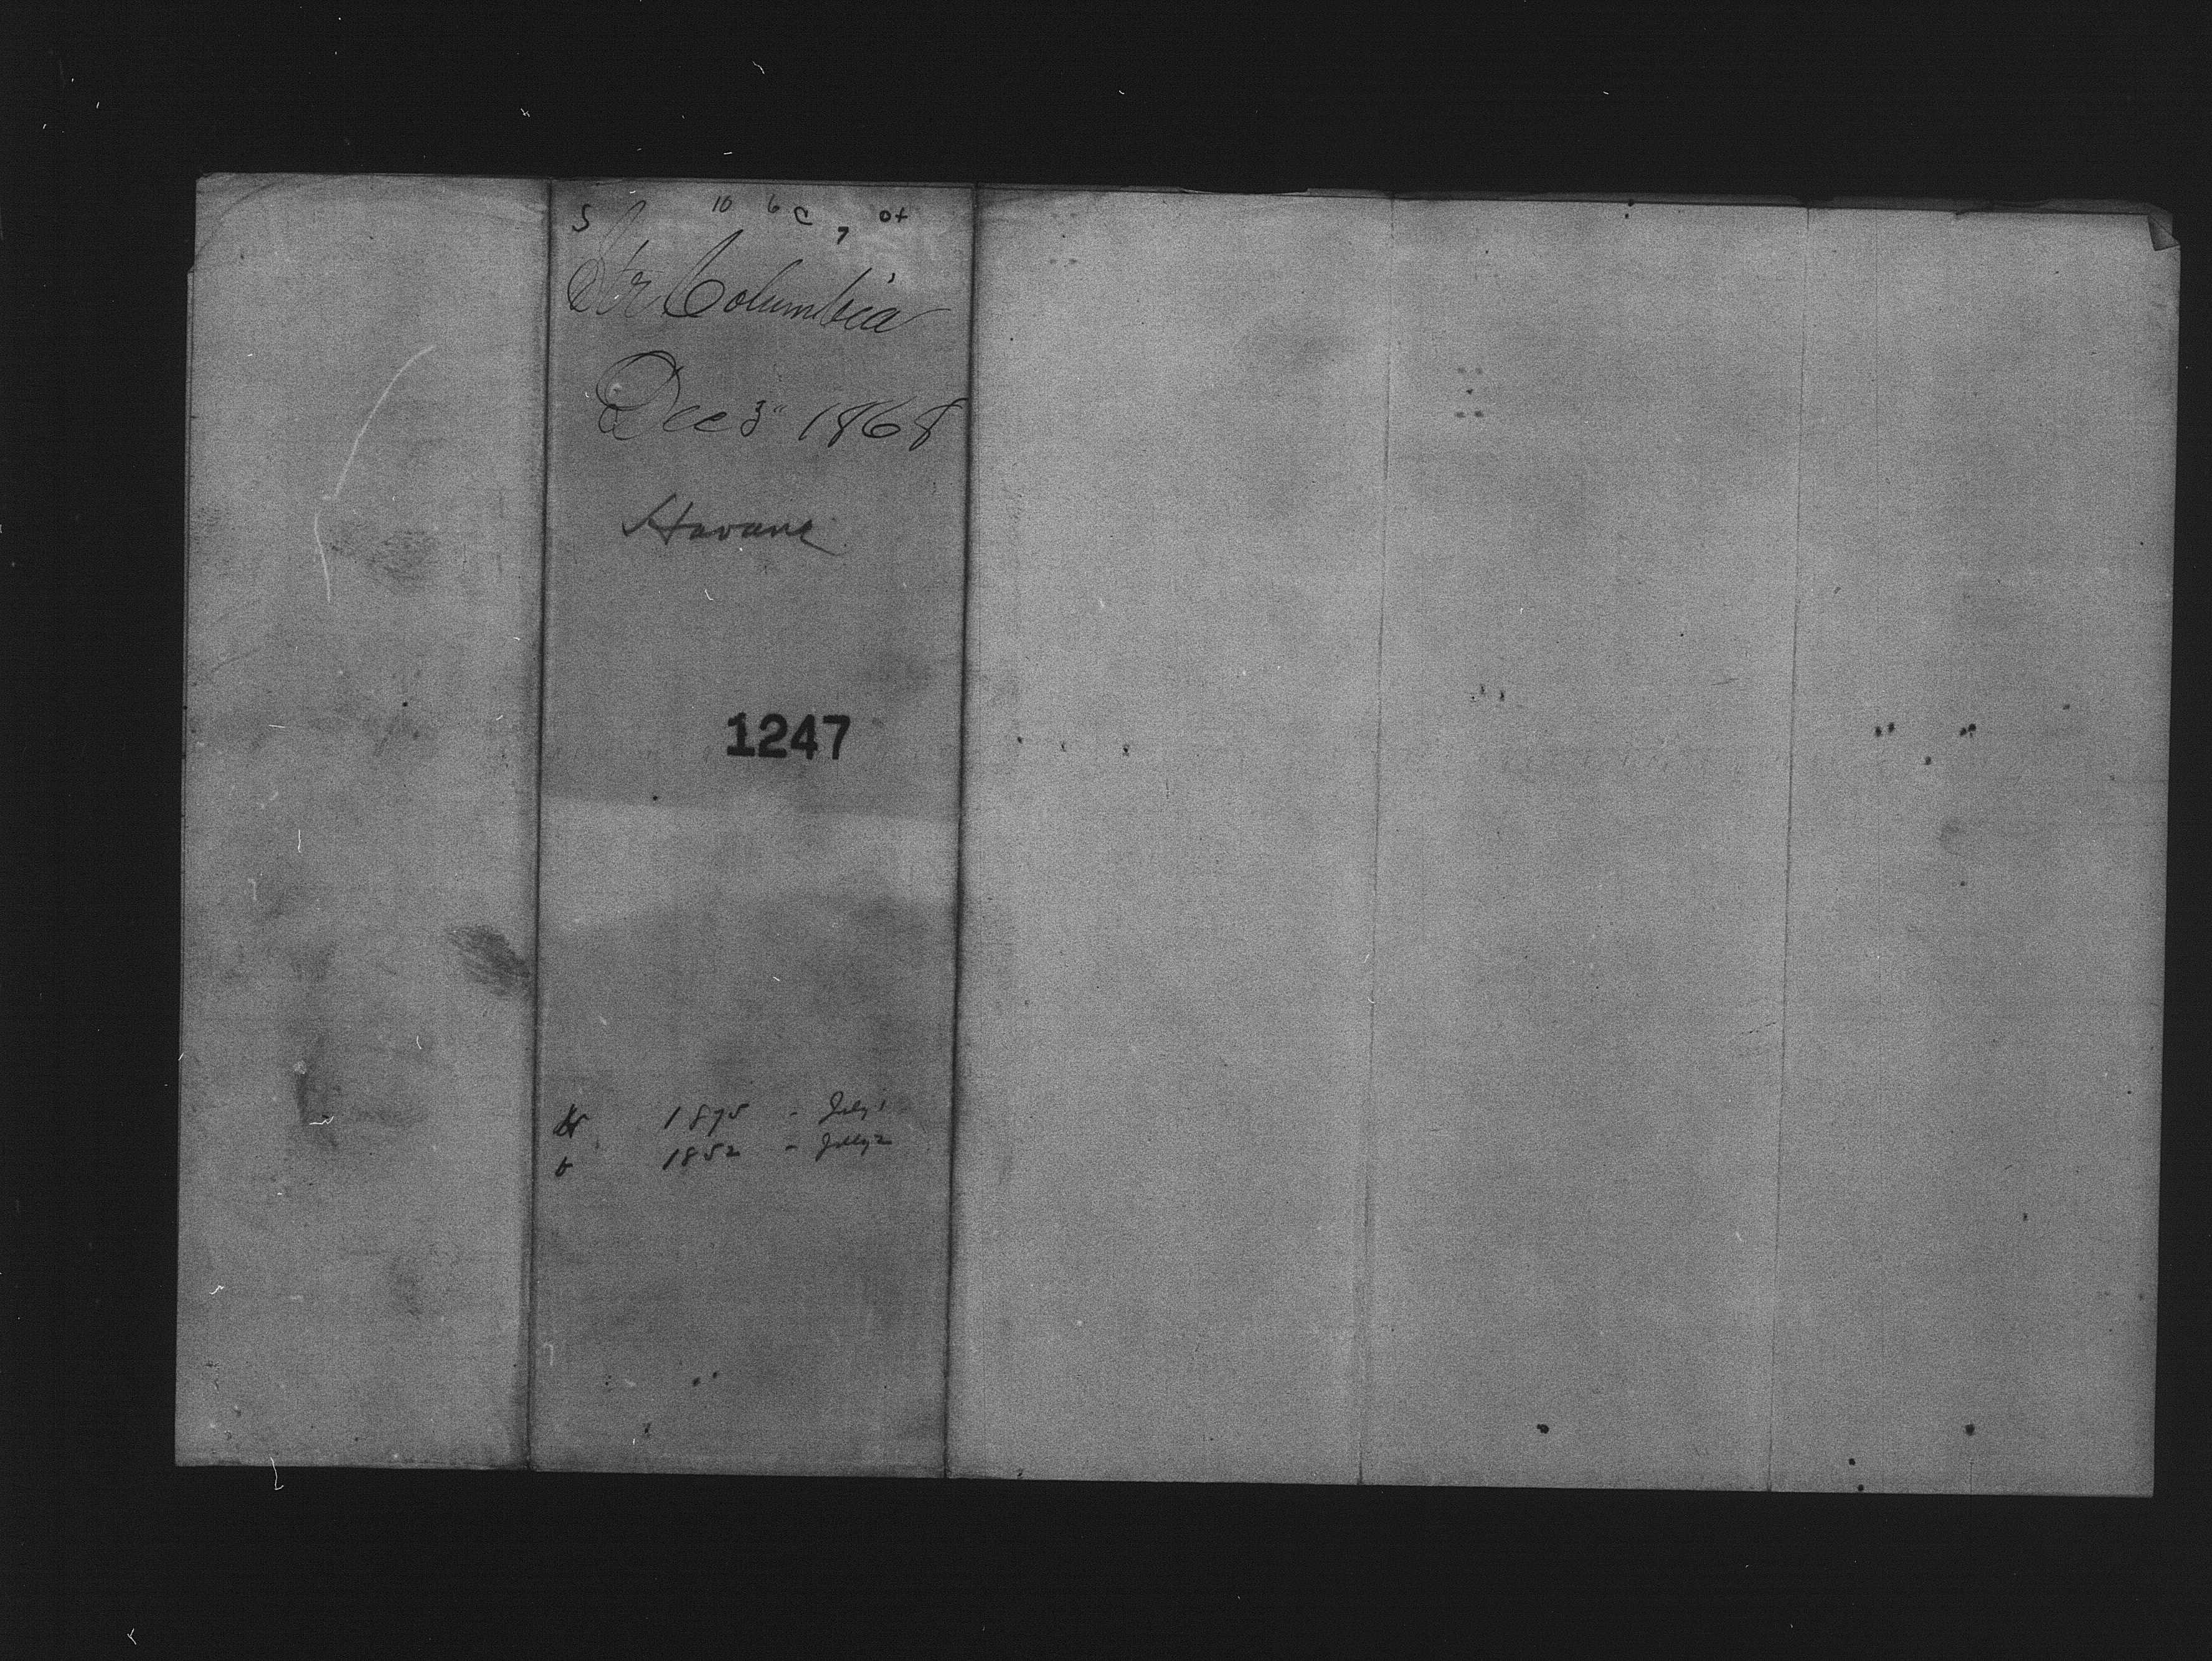 S 10 6 C 7 0+
Str Columbia
Dec 3" 1868
Havana
1247
1875 - July 1
1852 - July 2